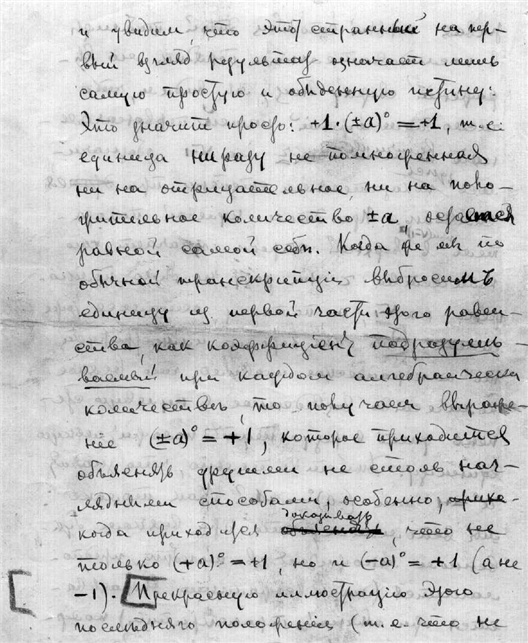 и увидим, что этот странный на пер-
вый взгляд результат означает лишь
самую простую и обыденную истину:
Это значит просто: +1·(±a)⁰ = +1, т.е.
единица ни разу не помноженная
ни на отрицательное, ни на поло-
жительное количество ±a остается
равной самой себѣ. Когда же мы по
обычной транскрипціи выбросимъ
единицу из первой части этого равен-
ства, как коэффиціент подразумѣ-
ваемый при каждом алгебраическом
количествѣ, то получаем выраже-
ніе (±a)⁰ = +1, которое приходится
объяснять другими не столь наг-
лядными способами, особенно,
когда приходится доказывать, что не
только (+a)⁰ = +1, но и (−a)⁰ = +1 (а не
−1). [Прекрасную иллюстрацію этого
последняго положенія (т.е. что не